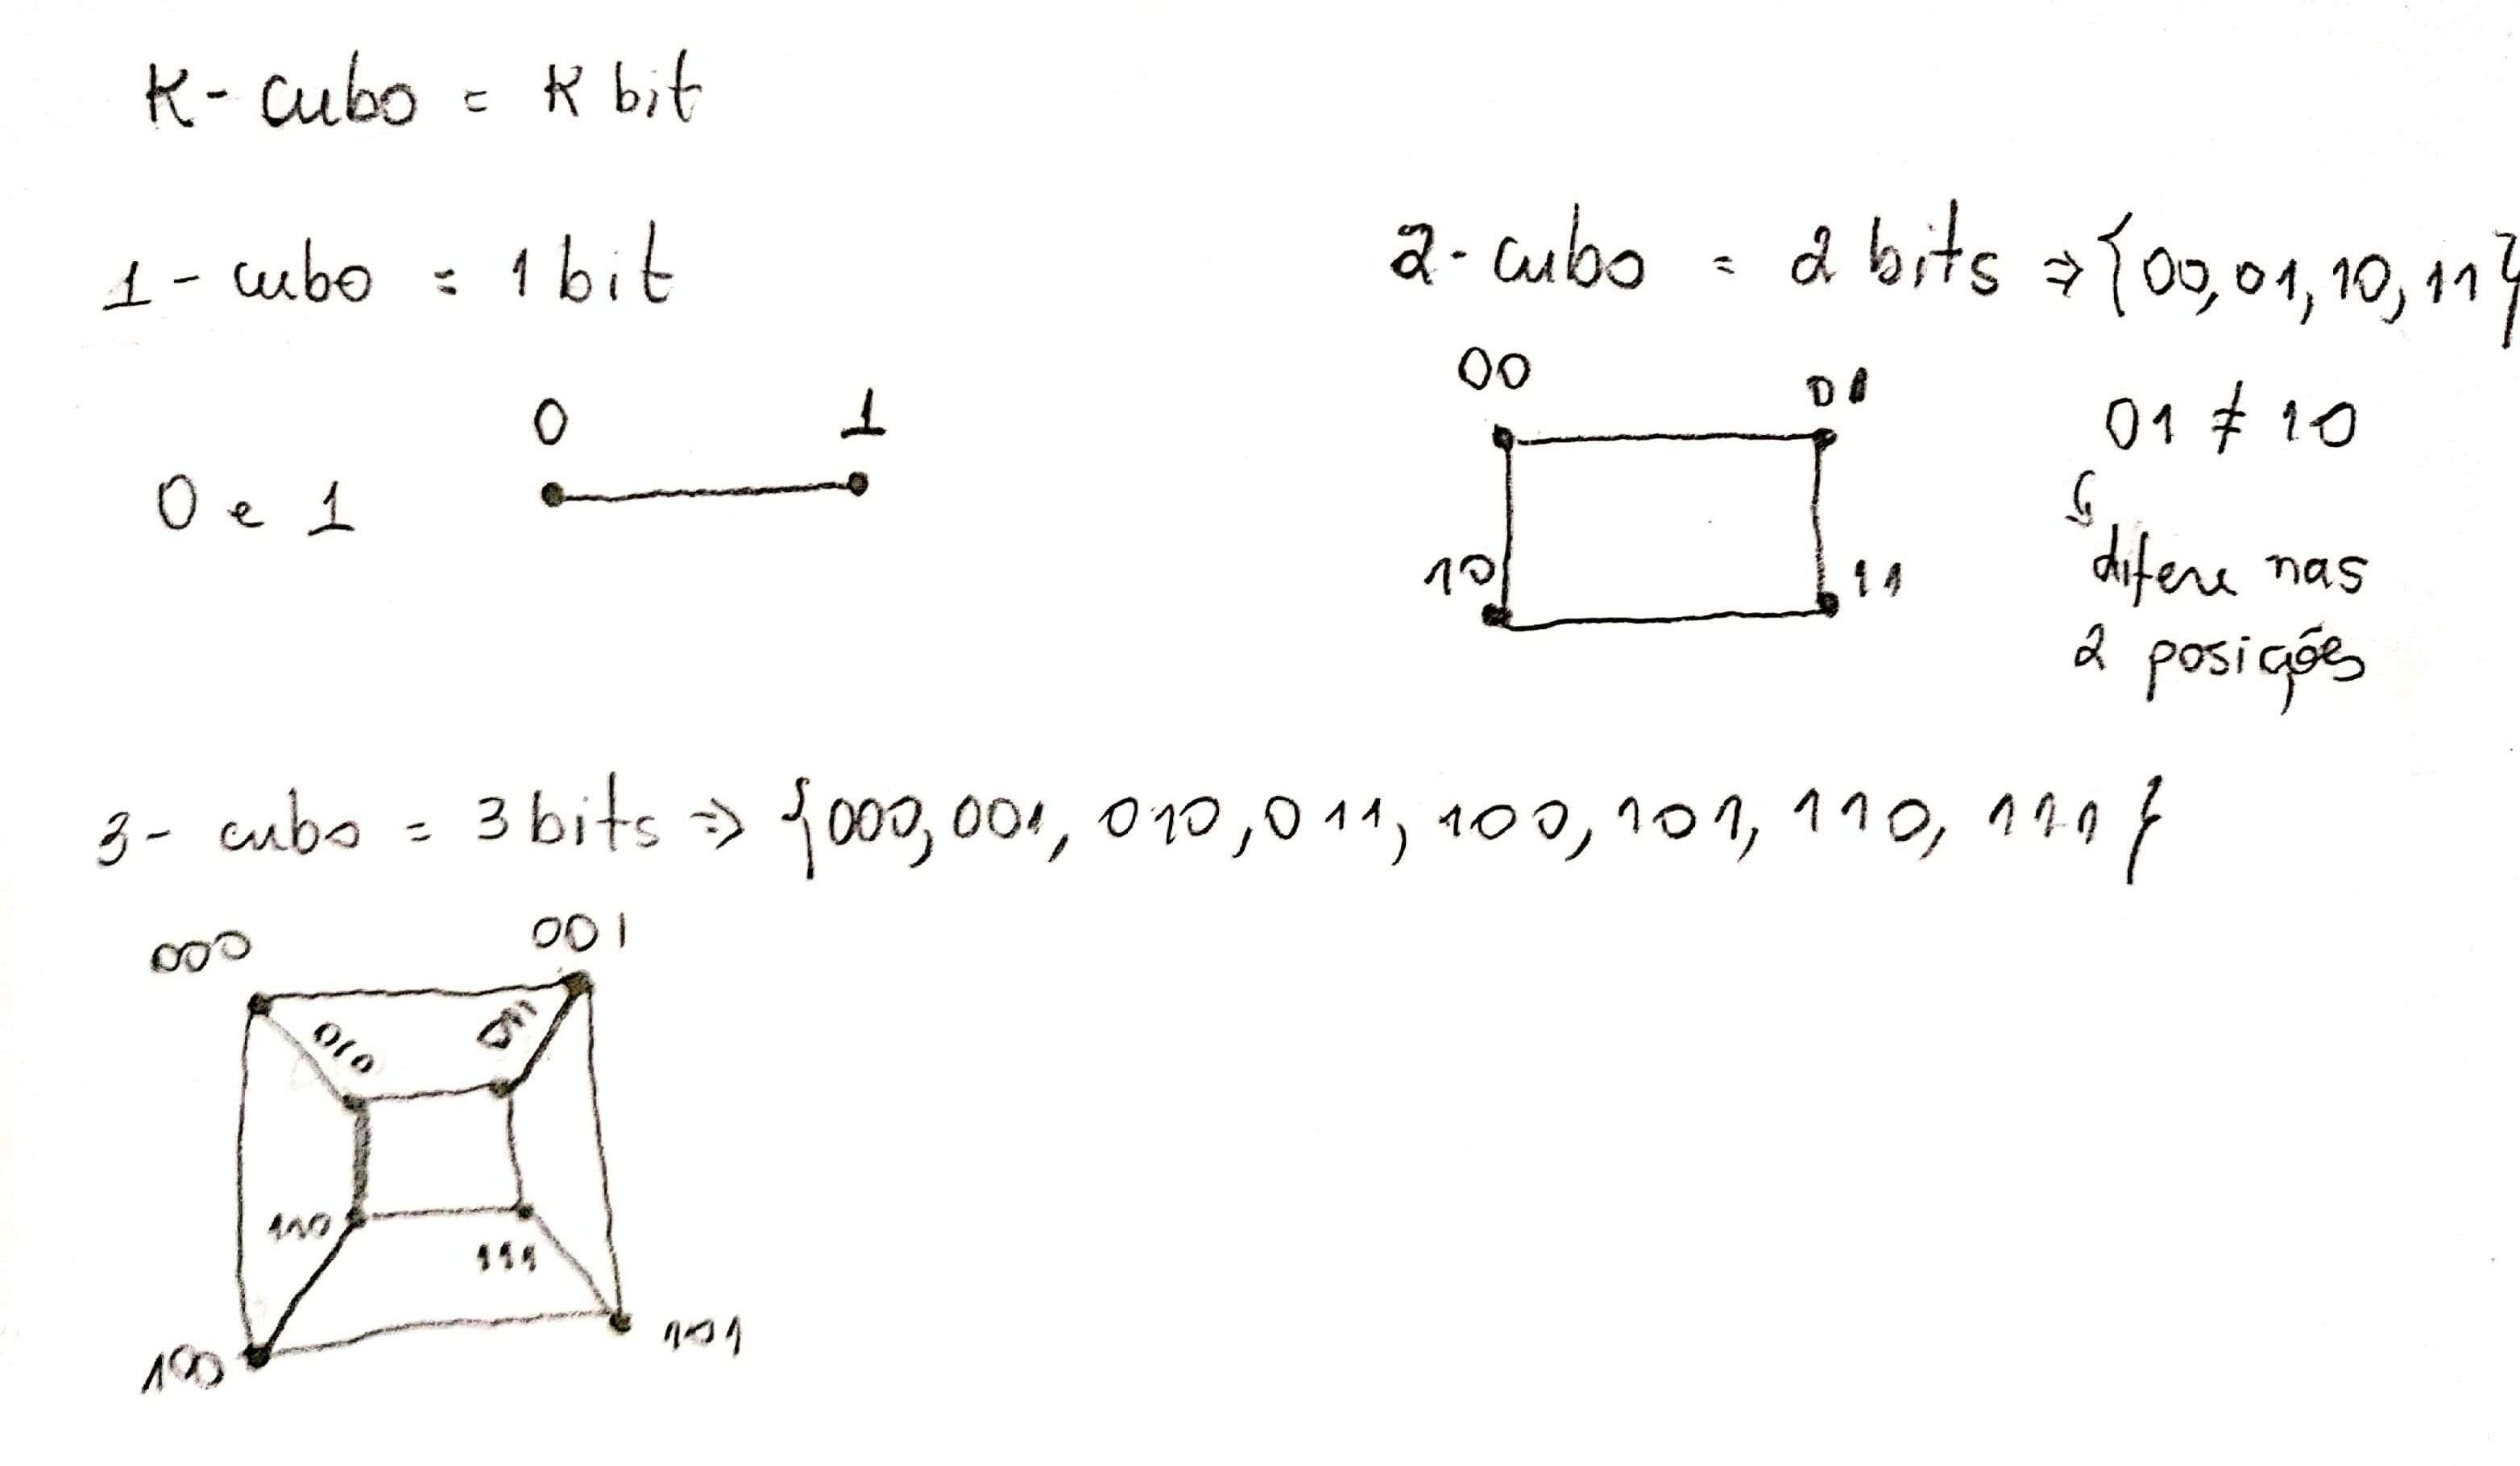 K - cubo = K bit
1 - cubo = 1 bit
0 1
0 e 1
2 - cubo = 2 bits ⇒ {00, 01, 10, 11}
00 01
10 11
01 ≠ 10
↳
difere nas
2 posições
3 - cubo = 3 bits ⇒ {000, 001, 010, 011, 100, 101, 110, 111}
000 001
010 011
110 111
100 101